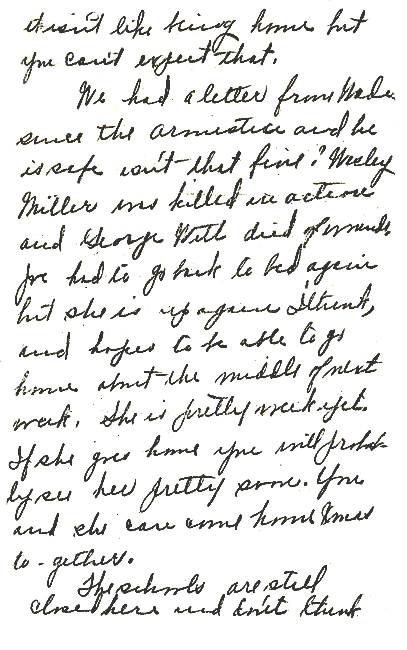 it isn't like being home but
you can't expect that.
We had a letter from Wade
since the armistice and he
is safe isn't that fine? Wesley
Miller was killed in action
and George With died of wounds.
Joe had to go back to bed again
but she is up again I think,
and hopes to be able to go
home about the middle of next
week. She is pretty weak yet.
If she goes home you will probab-
ly see her pretty soon. You
and she can come home Xmas
to-gether.
The schools are still
closed here and don't think